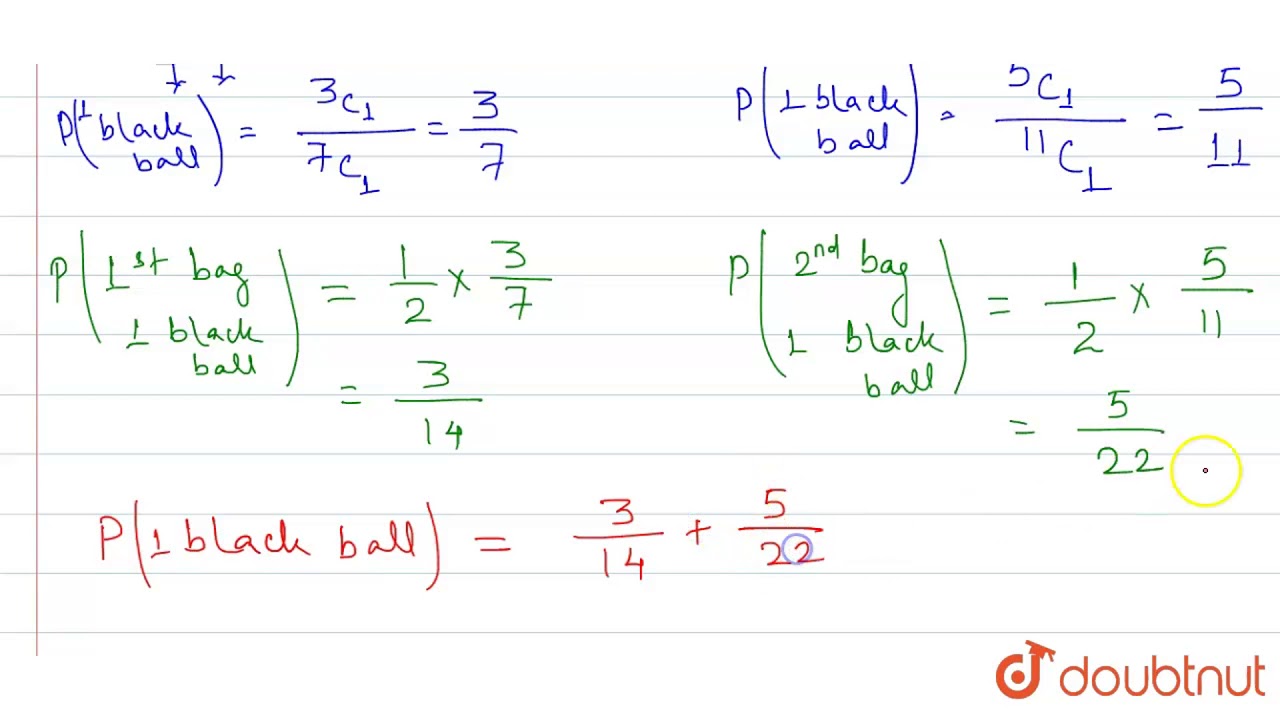 P(1 black ball) = 3C1 / 7C1 = 3/7
P(1 black ball) = 5C1 / 11C1 = 5/11
P(1st bag 1 black ball) = 1/2 × 3/7
= 3/14
P(2nd bag 1 black ball) = 1/2 × 5/11
= 5/22
P(1 black ball) = 3/14 + 5/22
doubtnut